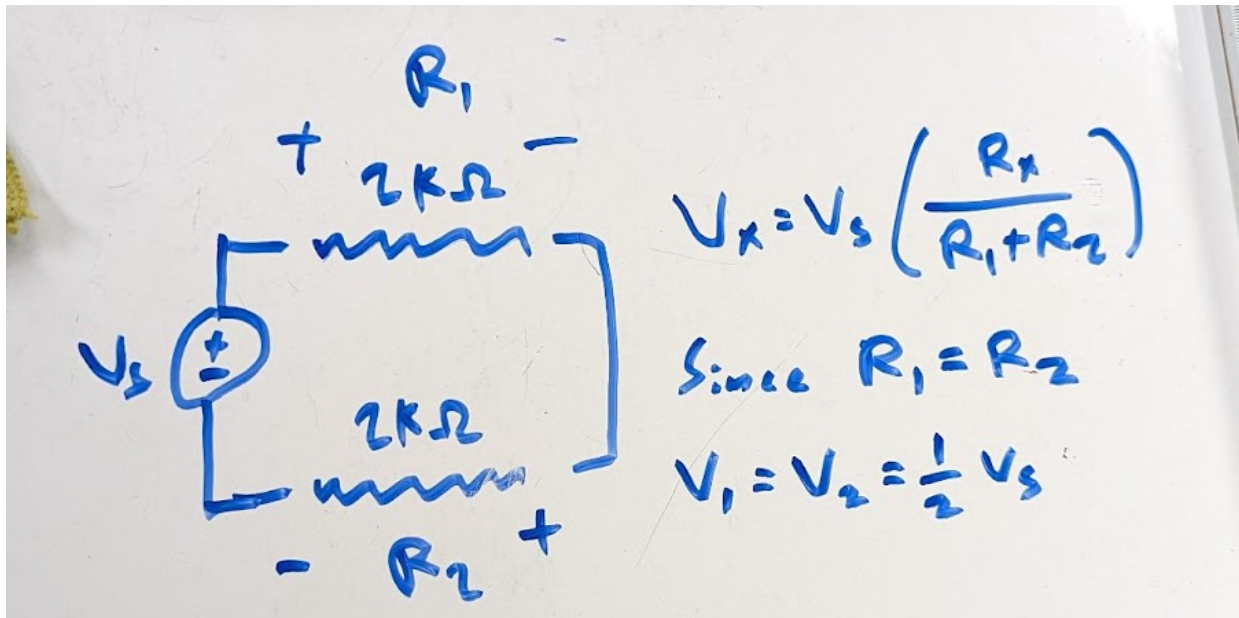 R₁
+ −
2kΩ
Vₛ
+
−
2kΩ
− R₂ +
Vₓ = Vₛ (Rₓ / R₁+R₂)
Since R₁ = R₂
V₁ = V₂ = ½ Vₛ